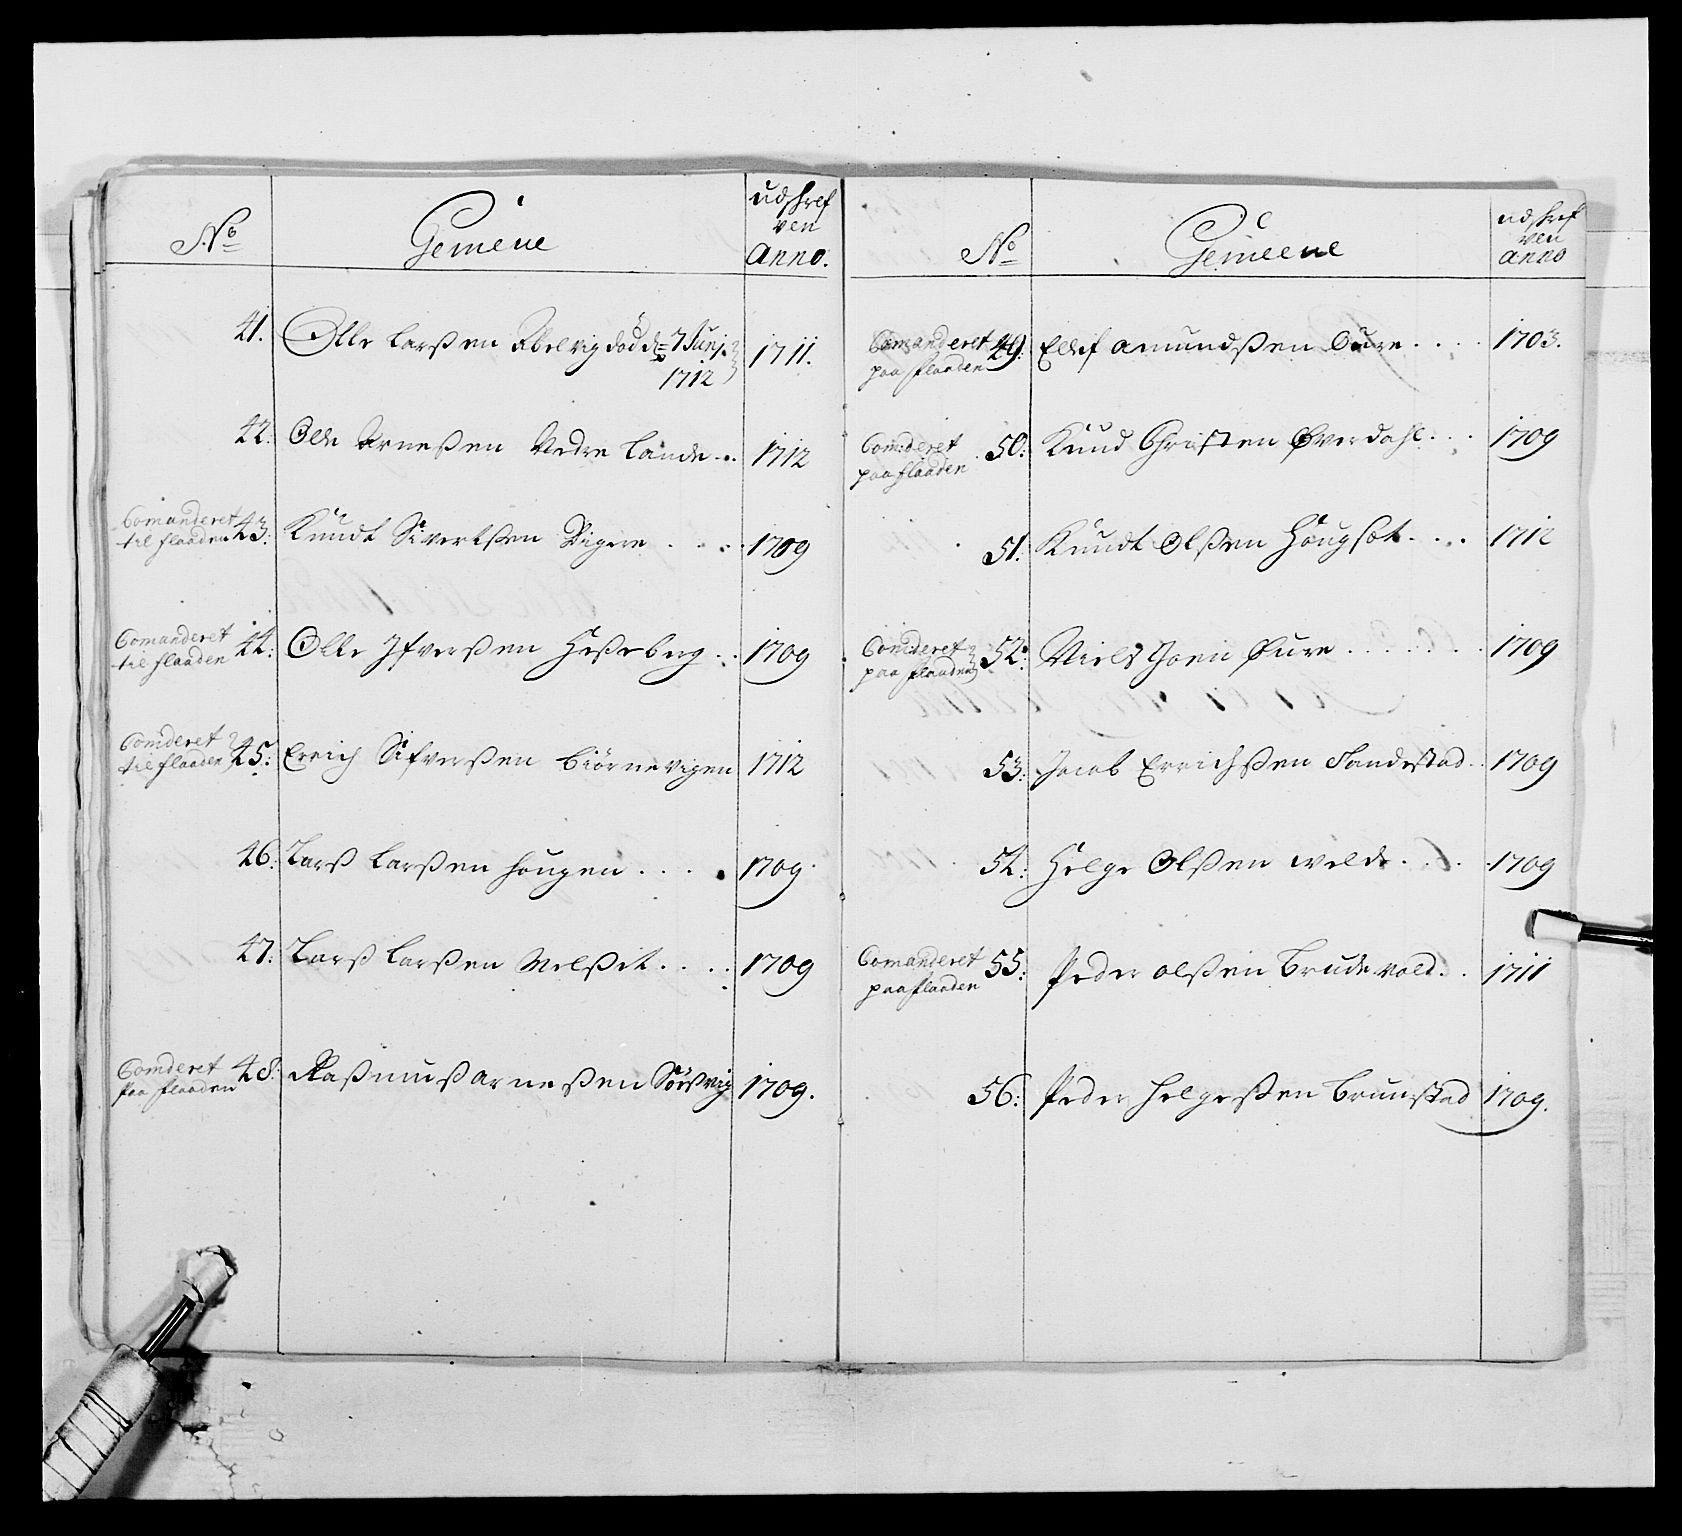 No
Gemene
udschref
ven
Anno.
41. Olle Larßen Abelvig död d: 7 Junj. 1711.
1712
42. Olle Arneßen Nedre Lande .. 1712
Comanderet
til flaaden 43. Knudt Sivertßen Digere .... 1709
Comanderet
til flaaden 44: Olle Ifverßen Heßeberg .. 1709
Comderet
til flaaden 45: Errich Sifverßen Biörnevigen 1712
46: Larß Larßen Hougen .... 1709.
47: Larß Larßen Melßet .... 1709
Comderet
paa flaaden 48: Raßmuß Arneßen Sörßvig 1709.
No
Gemeene
udschref
ven
Anno
Comanderet
paa flaaden 49. Ellef Amundßen Aure .... 1703.
Com:deret
paa flaaden 50: Knud Christen Øverdahl ... 1709
51. Knudt Olßen Hougsæt .... 1712
Com:deret
paa flaaden 52: Niels Joen Aure ....... 1709
53: Jacob Errichßen Sandestad .. 1709
54: Helge Olßen Welde .... 1709
Comanderet
paa flaaden 55: Peder Olßen Brudevold .. 1711
56: Peder Helgeßen Brunstad 1709.